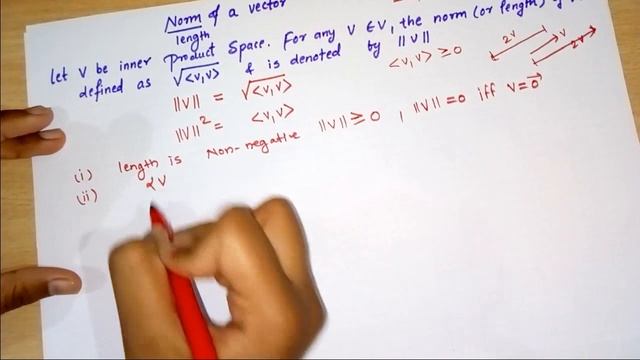 Norm of a vector
length
Let V be inner product space. For any V ∈ V, the norm (or length) of
defined as √<v,v> & is denoted by ||V||
||V|| = √<v,v>
<v,v> ≥ 0
2V
V
2V
||V||² = <v,v>
(i) length is Non-negative ||V|| ≥ 0, ||V|| = 0 iff V = 0⃗
(ii) αV